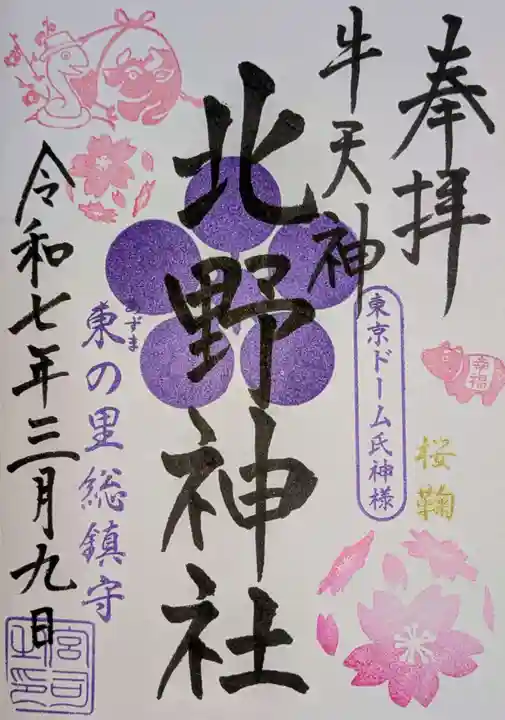 奉拝
牛天神
東京ドーム氏神様
幸福
桜鞠
北野神社
あずま
東の里総鎮守
令和七年三月九日
宮司之印